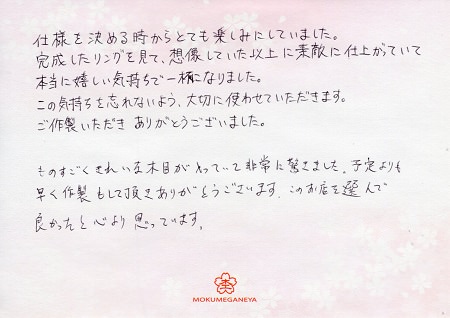 仕様を決める時からとても楽しみにしていました。
完成したリングを見て、想像していた以上に素敵に仕上がっていて
本当に嬉しい気持ちで一杯になりました。
この気持ちを忘れないよう、大切に使わせていただきます。
ご作製いただき ありがとうございました。
ものすごくきれいな木目が入っていて非常に驚きました。予定よりも
早く作製もして頂きありがとうございます。このお店を選んで
良かったと心より思っています。
MOKUMEGANEYA